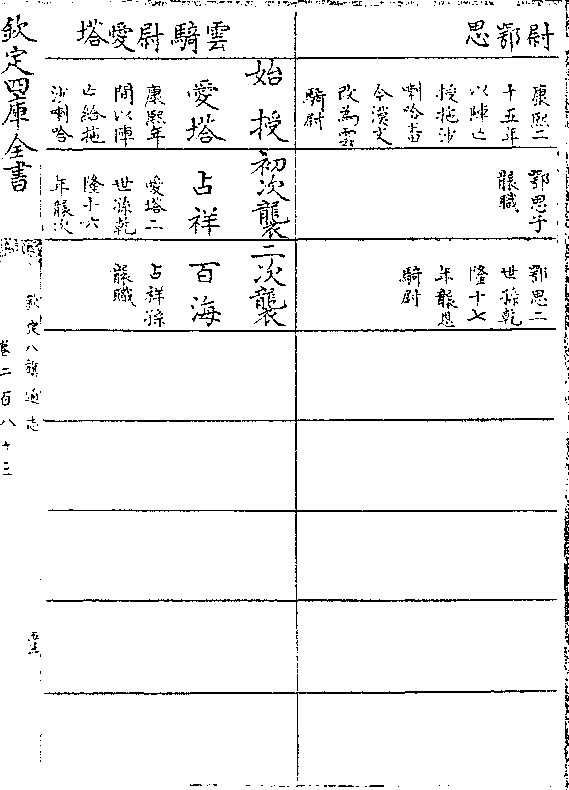 尉鄂思
康熙二
十五年
以陣亡
授拖沙
喇哈番
今漢文
改為雲
騎尉
鄂思子
襲職
鄂思二
世孫乾
隆十七
年襲恩
騎尉
雲騎尉愛塔
始授
初次襲
二次襲
愛塔
康熙年
間以陣
亡給拖
沙喇哈
占祥
愛塔二
世孫乾
隆十六
年襲次
百海
占祥孫
襲職
欽定四庫全書
欽定八旗通志
卷二百八十三